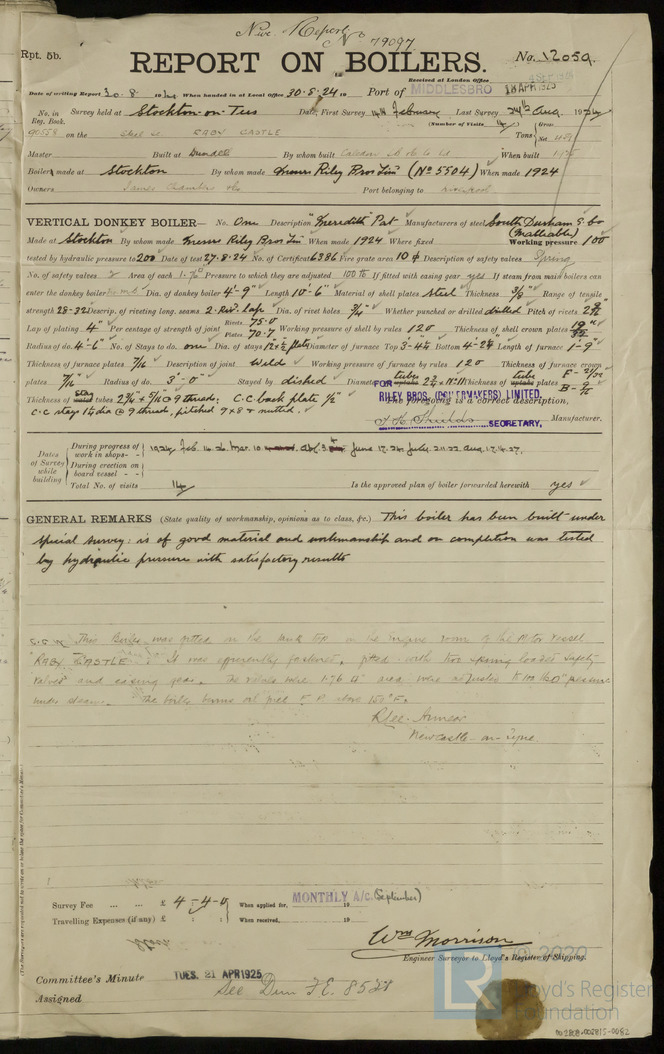 Nwc. Report No 79097
Rpt. 5b.
REPORT ON BOILERS.
No. 12059.
Received at London Office
18 APR 1925
Date of writing Report 30.8.1924 When handed in at Local Office 30.8.24 19 Port of MIDDLESBRO
No. in Reg. Book. Survey held at Stockton-on-Tees Date, First Survey 14th February Last Survey 27th Aug. 1924
(Number of Visits 14)
90558 on the Steel Sc RABY CASTLE Tons Gross Net
Master Built at Dundee By whom built Caledon SB & E Ld When built 1925
Boilers made at Stockton By whom made Messrs Riley Bros Lim (No 5504) When made 1924
Owners James Chambers & Co Port belonging to Liverpool
VERTICAL DONKEY BOILER— No. One Description "Meredith" Pat Manufacturers of steel South Durham S. Co (Malleable)
Made at Stockton By whom made Messrs Riley Bros Lim When made 1924 Where fixed Working pressure 100
tested by hydraulic pressure to 200 Date of test 27.8.24 No. of Certificate 6386 Fire grate area 10 ф Description of safety valves Spring
No. of safety valves 2 Area of each 1.76□" Pressure to which they are adjusted 100 lb If fitted with easing gear yes If steam from main boilers can
enter the donkey boiler Dia. of donkey boiler 4'-9" Length 10'-6" Material of shell plates Steel Thickness 3/8" Range of tensile
strength 28-32 Descrip. of riveting long. seams 2. Riv. Lap Dia. of rivet holes 3/4" Whether punched or drilled drilled Pitch of rivets
Lap of plating 4" Per centage of strength of joint Rivets 75.0 Plates 70.7 Working pressure of shell by rules 120 Thickness of shell crown plates 19/32"
Radius of do. 4'-6" No. of Stays to do. one Dia. of stays Diameter of furnace Top Bottom Length of furnace 1'-9"
Thickness of furnace plates 7/16" Description of joint Weld Working pressure of furnace by rules 120 Thickness of furnace crown
plates 7/16" Radius of do. 3'-0" Stayed by dished Diameter of uptake tube Thickness of uptake tube plates F- B-
Thickness of water tubes C.C. back plate 1/2" The foregoing is a correct description,
C.C stays 1 1/8 dia @ 9 threads, pitched 9 x 8 & nutted.
FOR RILEY BROS. (BOILERMAKERS) LIMITED.
SECRETARY, Manufacturer.
Dates of Survey while building During progress of work in shops - - 1924 Feb. 14. 26. Mar. 10. Apl. 3. June 17. 24. July. 2. 11. 22. Aug. 1. 7. 14. 27.
During erection on board vessel - -
Total No. of visits 14 Is the approved plan of boiler forwarded herewith yes
GENERAL REMARKS (State quality of workmanship, opinions as to class, &c.) This boiler has been built under
special survey: is of good material and workmanship and on completion was tested
by hydraulic pressure with satisfactory results
This Boiler was fitted on the tank top in the Engine room of the Motor Vessel
"RABY CASTLE". It was efficiently fastened, fitted with two spring loaded safety
valves and easing gear. The valves were 1.76 □" area were adjusted to 100 lbs □" pressure
under steam. The boiler burns oil fuel F.P. above 150°F.
R Lee-Amess
Newcastle-on-Tyne.
Survey Fee ... ... £ 4-4-0 When applied for, MONTHLY A/c. (September) 19
Travelling Expenses (if any) £ : : When received, 19
Wm Morrison
Engineer Surveyor to Lloyd's Register of Shipping.
Committee's Minute TUES. 21 APR 1925
Assigned See
© 2020
LR Lloyd's Register Foundation
002808-002815-0082